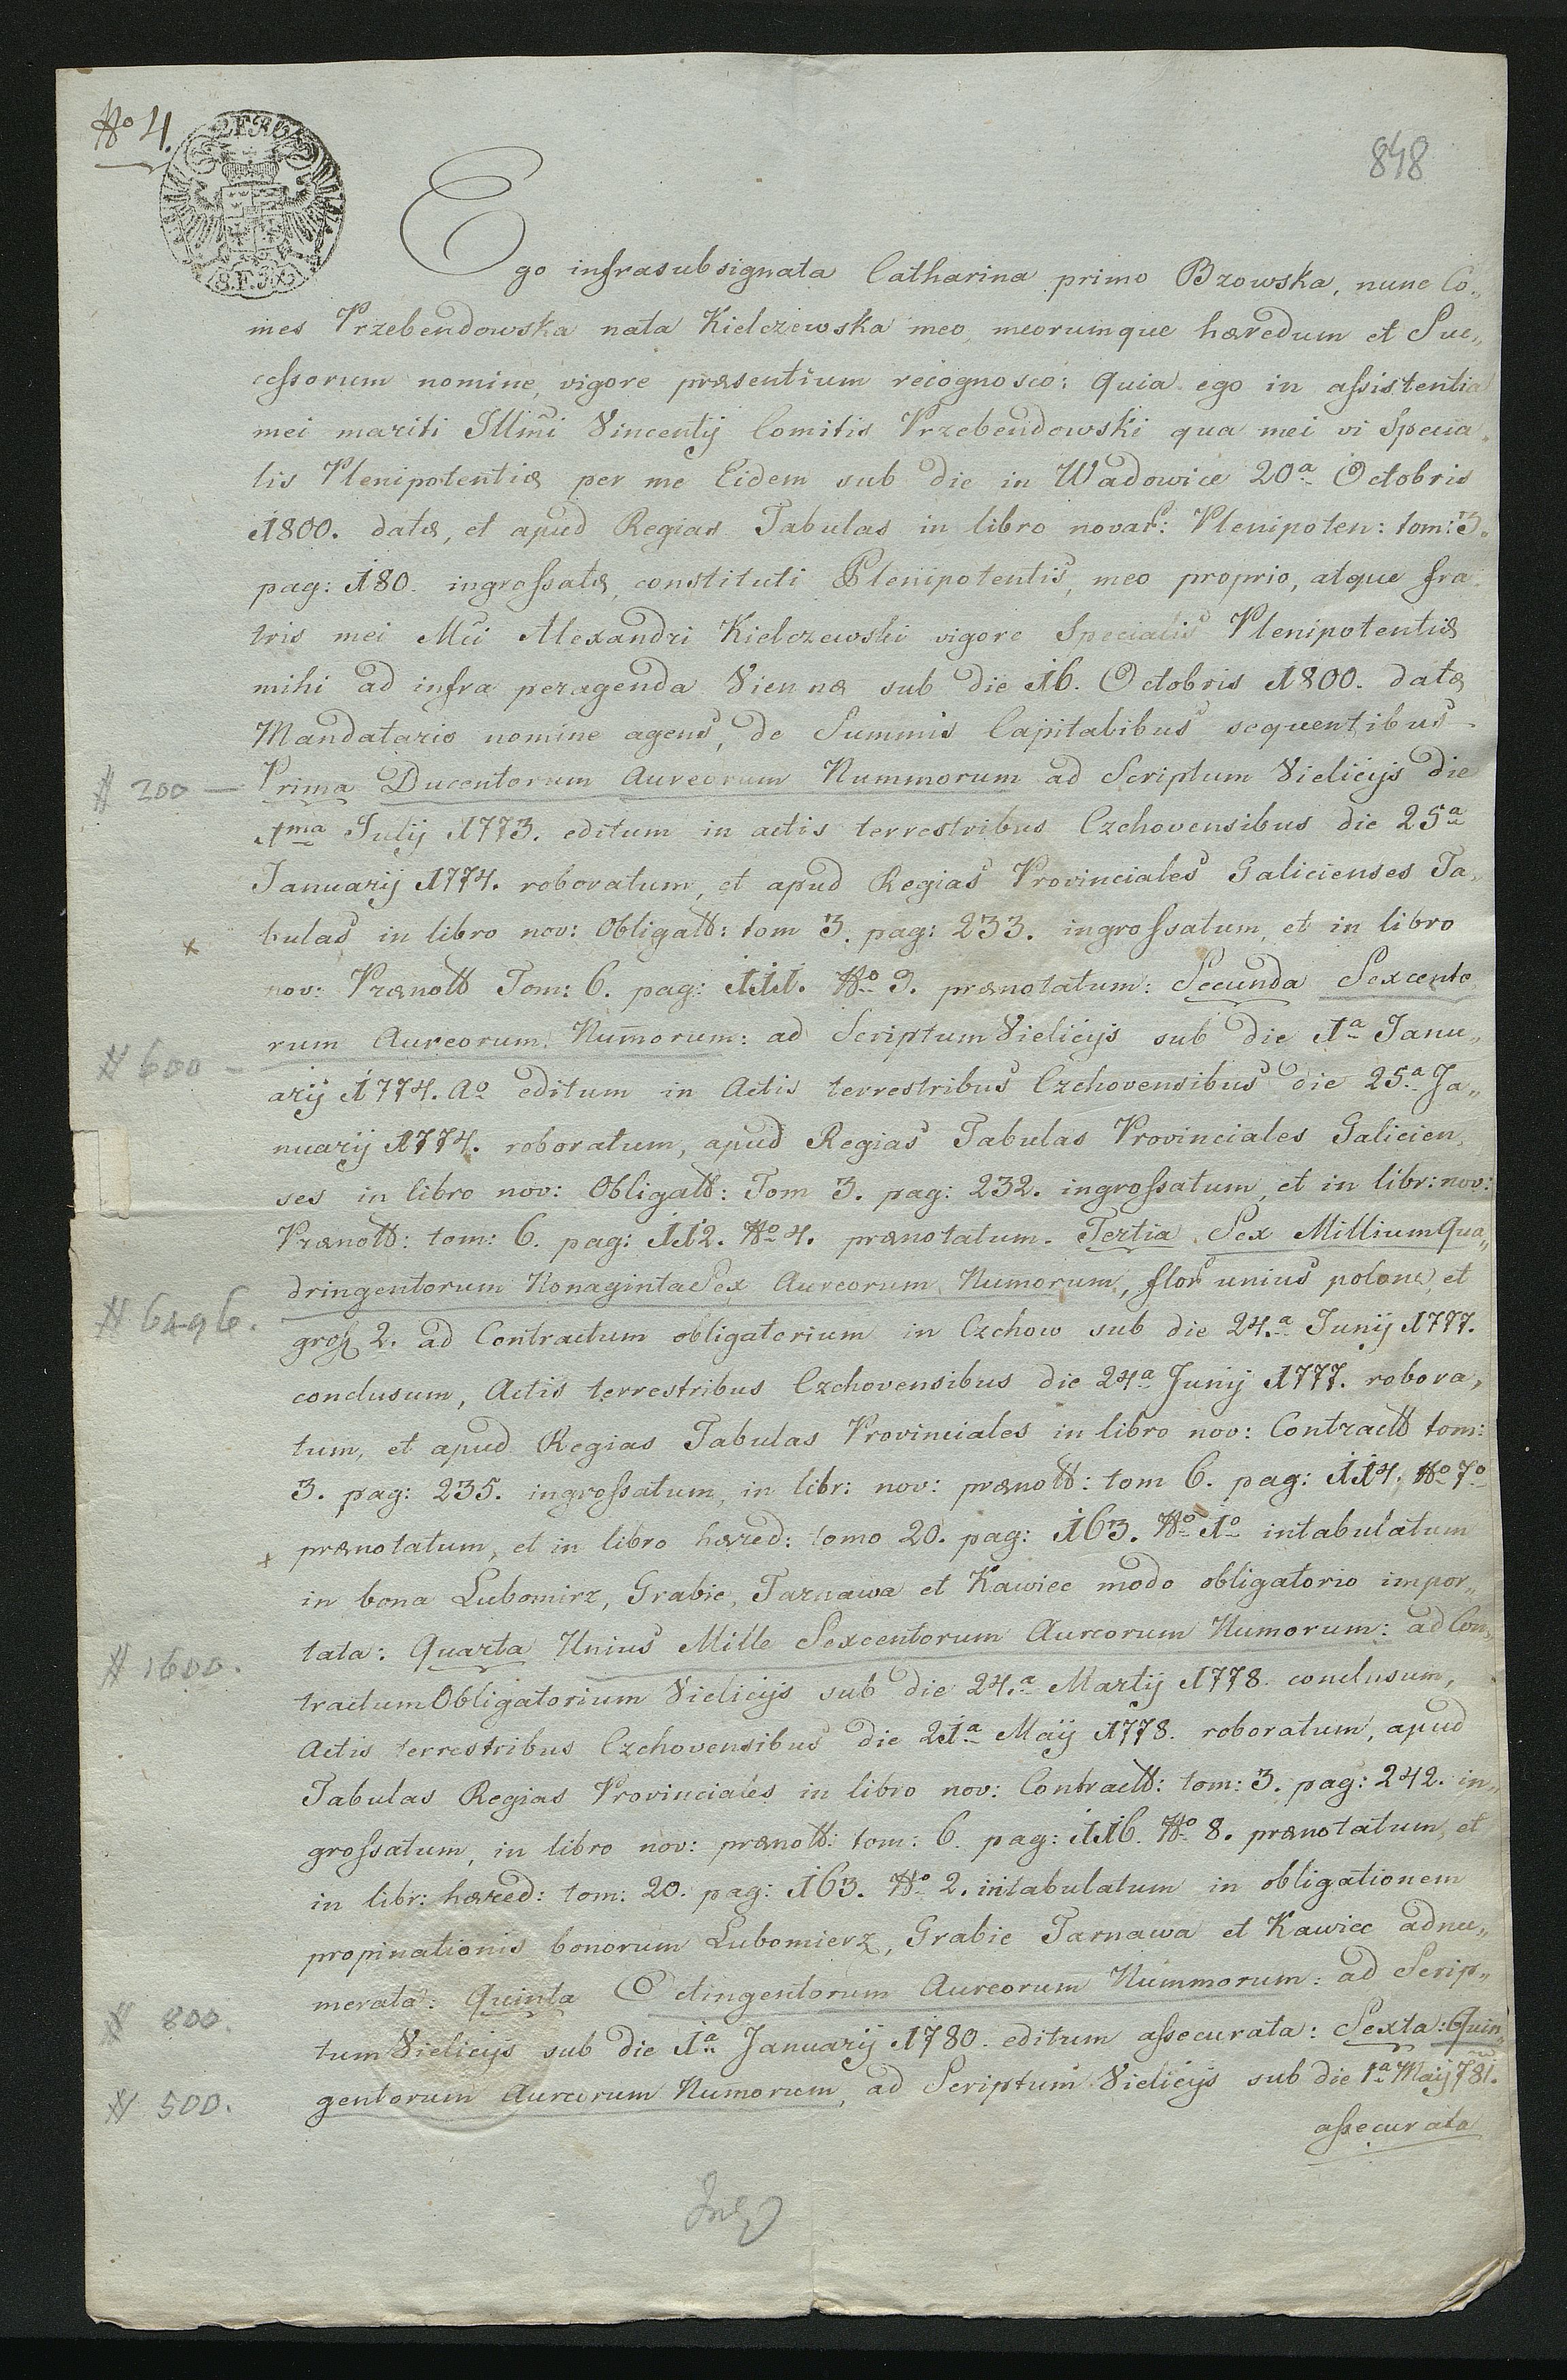 No 4.
848
Ego infrasubsignata Catharina primo Bzowska, nunc Co„
mes Przebendowska nata Kielczewska meo, meorumque hæredum et Suc„
cessorum nomine, vigore præsentium recognosco: quia ego in assistentia
mei mariti Illmi Vincentij Comitis Przebendowski qua mei vi Specia„
lis Plenipotentiæ per me Eidem sub die in Wadowice 20a Octobris
1800. datæ, et apud Regias Tabulas in libro novar: Plenipoten: tom: 3.
pag: 180. ingrossatæ, constituti Plenipotentis, meo proprio, atque fra„
tris mei Mci Alexandri Kielczewski vigore Specialis Plenipotentiæ
mihi ad infra peragenda Viennæ sub die 16. Octobris 1800. datæ
Mandatario nomine agens, de Summis Capitalibus sequentibus
# 200 — Prima Ducentorum Aureorum Nummorum ad Scriptum Vielicijs die
1ma Julij 1773. editum in actis terrestribus Czchovensibus die 25a
Januarij 1774. roboratum, et apud Regias Provinciales Galicienses Ta„
x bulas in libro nov: Obligatt: tom 3. pag: 233. ingrossatum, et in libro
nov: Prænott Tom: 6. pag: 111. No 3. prænotatum: Secunda Sexcento
rum Aureorum Numorum: ad Scriptum Vielicijs sub die 1a Janu„
# 600 — arij 1774. Ao editum in Actis terrestribus Czchovensibus die 25.a Ja„
nuarij 1774. roboratum, apud Regias Tabulas Provinciales Galicien„
ses in libro nov: Obligatt: Tom 3. pag: 232. ingrossatum, et in libr: nov:
Prænott: tom: 6. pag: 112. No 4. prænotatum. Tertia Sex Millium Qua„
# 6496. dringentorum Nonaginta Sex Aureorum Numorum, flor unius polone, et
gross 2. ad Contractum obligatorium in Czchow sub die 24.a Junij 1777.
conclusum, Actis terrestribus Czchovensibus die 24a Junij 1777. robora„
tum, et apud Regias Tabulas Provinciales in libro nov: Contractt tom:
3. pag: 235. ingrossatum, in libr: nov: prænott: tom 6. pag: 114. No 7o
x prænotatum, et in libro hæred: tomo 20. pag: 163. No 1o intabulatum
in bona Lubomirz, Grabie, Tarnawa et Kawiec modo obligatorio impor„
# 1600. tata: Quarta Unius Mille Sexcentorum Aureorum Numorum: ad Con„
tractum Obligatorium Vielicijs sub die 24.a Martij 1778. conclusum,
Actis terrestribus Czchovensibus die 21a Maij 1778. roboratum, apud
Tabulas Regias Provinciales in libro nov: Contractt: tom: 3. pag: 242. in„
grossatum, in libro nov: prænott: tom: 6. pag: 116. No 8. prænotatum, et
in libr: hæred: tom: 20. pag: 163. No 2. intabulatum in obligationem
propinationis bonorum Lubomierz, Grabie Tarnawa et Kawiec adnu„
merata: Quinta Octingentorum Aureorum Nummorum: ad Scrip„
# 800. tum Vielicijs sub die 1a Januarij 1780. editum assecurata: Sexta: Quin„
# 500. gentorum Aureorum Numorum, ad Scriptum Vielicijs sub die 1a Maij 781.
assecurata